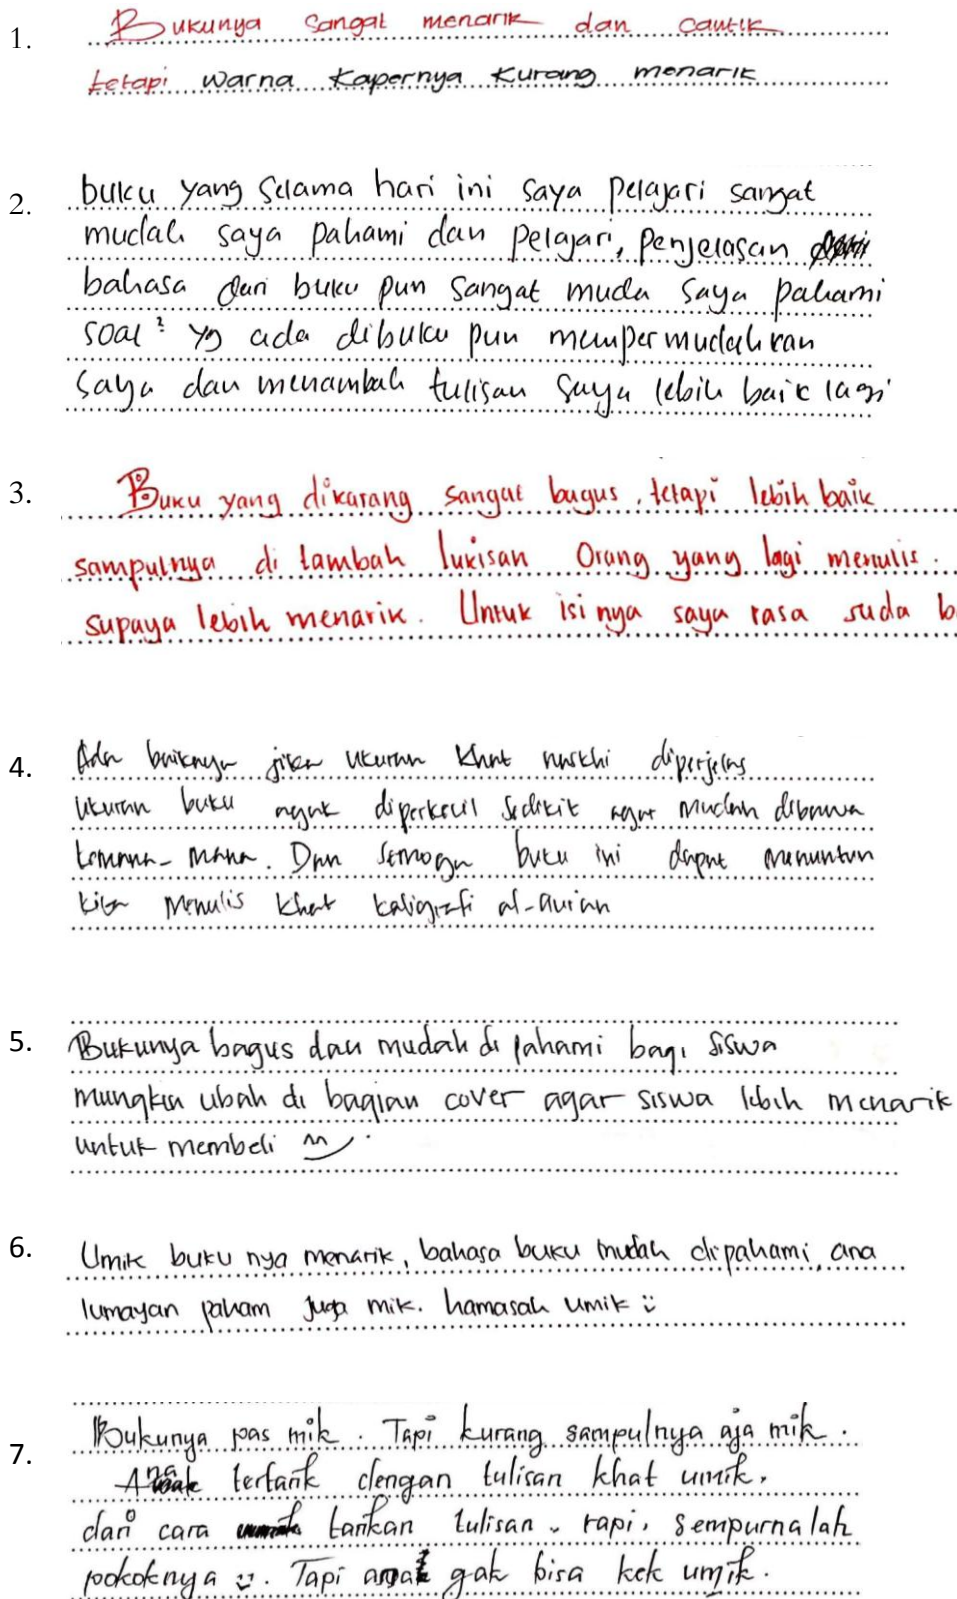 1. Bukunya sangat menarik dan cantik
tetapi warna kapernya kurang menarik
2. buku yang selama hari ini saya pelajari sangat
mudah saya pahami dan pelajari, penjelasan
bahasa dari buku pun sangat muda saya pahami
soal² yg ada dibuku pun mempermudahkan
saya dan menambah tulisan saya lebih baik lagi
3. Buku yang dikarang sangat bagus, tetapi lebih baik
sampulnya di tambah lukisan Orang yang lagi menulis.
supaya lebih menarik. Untuk isinya saya rasa suda b
4. Ada baiknya jika ukuran khat naskhi diperjelas
ukuran buku agak diperkecil sedikit agar mudah dibawa
kemana-mana. Dan semoga buku ini dapat menuntun
kita menulis khat kaligrafi al-quran
5. Bukunya bagus dan mudah di pahami bagi siswa
mungkin ubah di bagian cover agar siswa lebih menarik
untuk membeli
6. Umik buku nya menarik, bahasa buku mudah dipahami, ana
lumayan paham juga mik. hamasah umik
7. Bukunya pas mik. Tapi kurang sampulnya aja mik.
Ana tertarik dengan tulisan khat umik.
dari cara tarikan tulisan. rapi, sempurnalah
pokoknya. Tapi ana gak bisa kek umik.